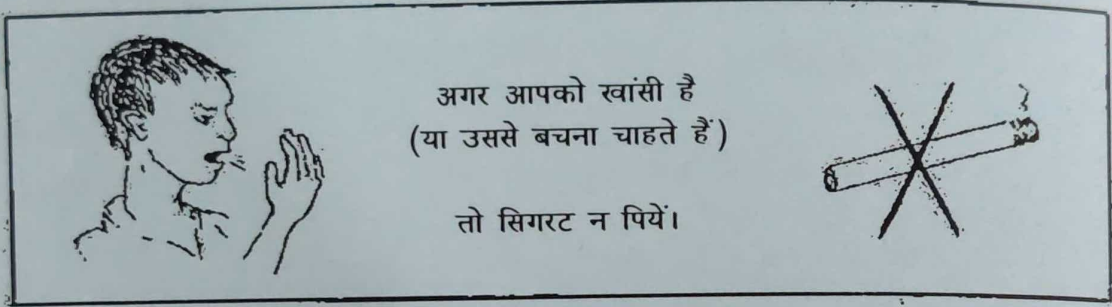 अगर आपको खांसी है
(या उससे बचना चाहते हैं)
तो सिगरट न पियें।